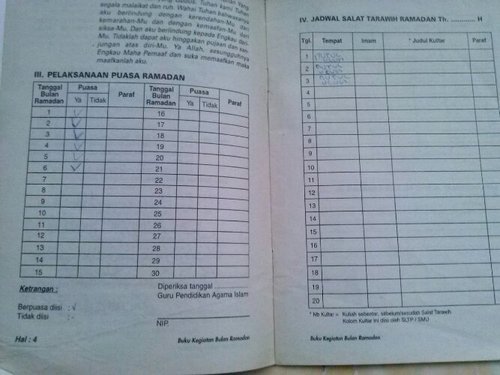 segala malaikat dan ruh. Wahai Tuhan bahwasanya
aku berlindung dengan kerendahan-Mu dari
kemarahan-Mu dan dengan kemaafan-Mu dari
siksa-Mu. Dan aku berlindung kepada Engkau dari-
Mu. Tidaklah dapat aku hinggakan pujaan dan
jungan atas diri-Mu. Ya Allah, sesungguhnya
Engkau Maha Pemaaf dan suka memaafkan maka
maafkanlah aku.
III. PELAKSANAAN PUASA RAMADAN
Tanggal Bulan Ramadan Puasa Ya Tidak Paraf Tanggal Bulan Ramadan Puasa Ya Tidak Paraf
1 √ 16
2 √ 17
3 √ 18
4 √ 19
5 √ 20
6 √ 21
7 22
8 23
9 24
10 25
11 26
12 27
13 28
14 29
15 30
Ketrangan :
Berpuasa diisi : √
Tidak diisi : -
Diperiksa tanggal
Guru Pendidikan Agama Islam
NIP.
Hal : 4
Buku Kegiatan Bulan Ramadan
IV. JADWAL SALAT TARAWIH RAMADAN Th. ............ H
Tgl. Tempat Imam * Judul Kultar Paraf
1
2
3
4
5
6
7
8
9
10
11
12
13
14
15
16
17
18
19
20
* Nb Kultar = Kuliah sebentar, sebelum/sesudah Salat Tarawih
Kolom Kultar ini diisi oleh SLTP / SMU
Buku Kegiatan Bulan Ramadan